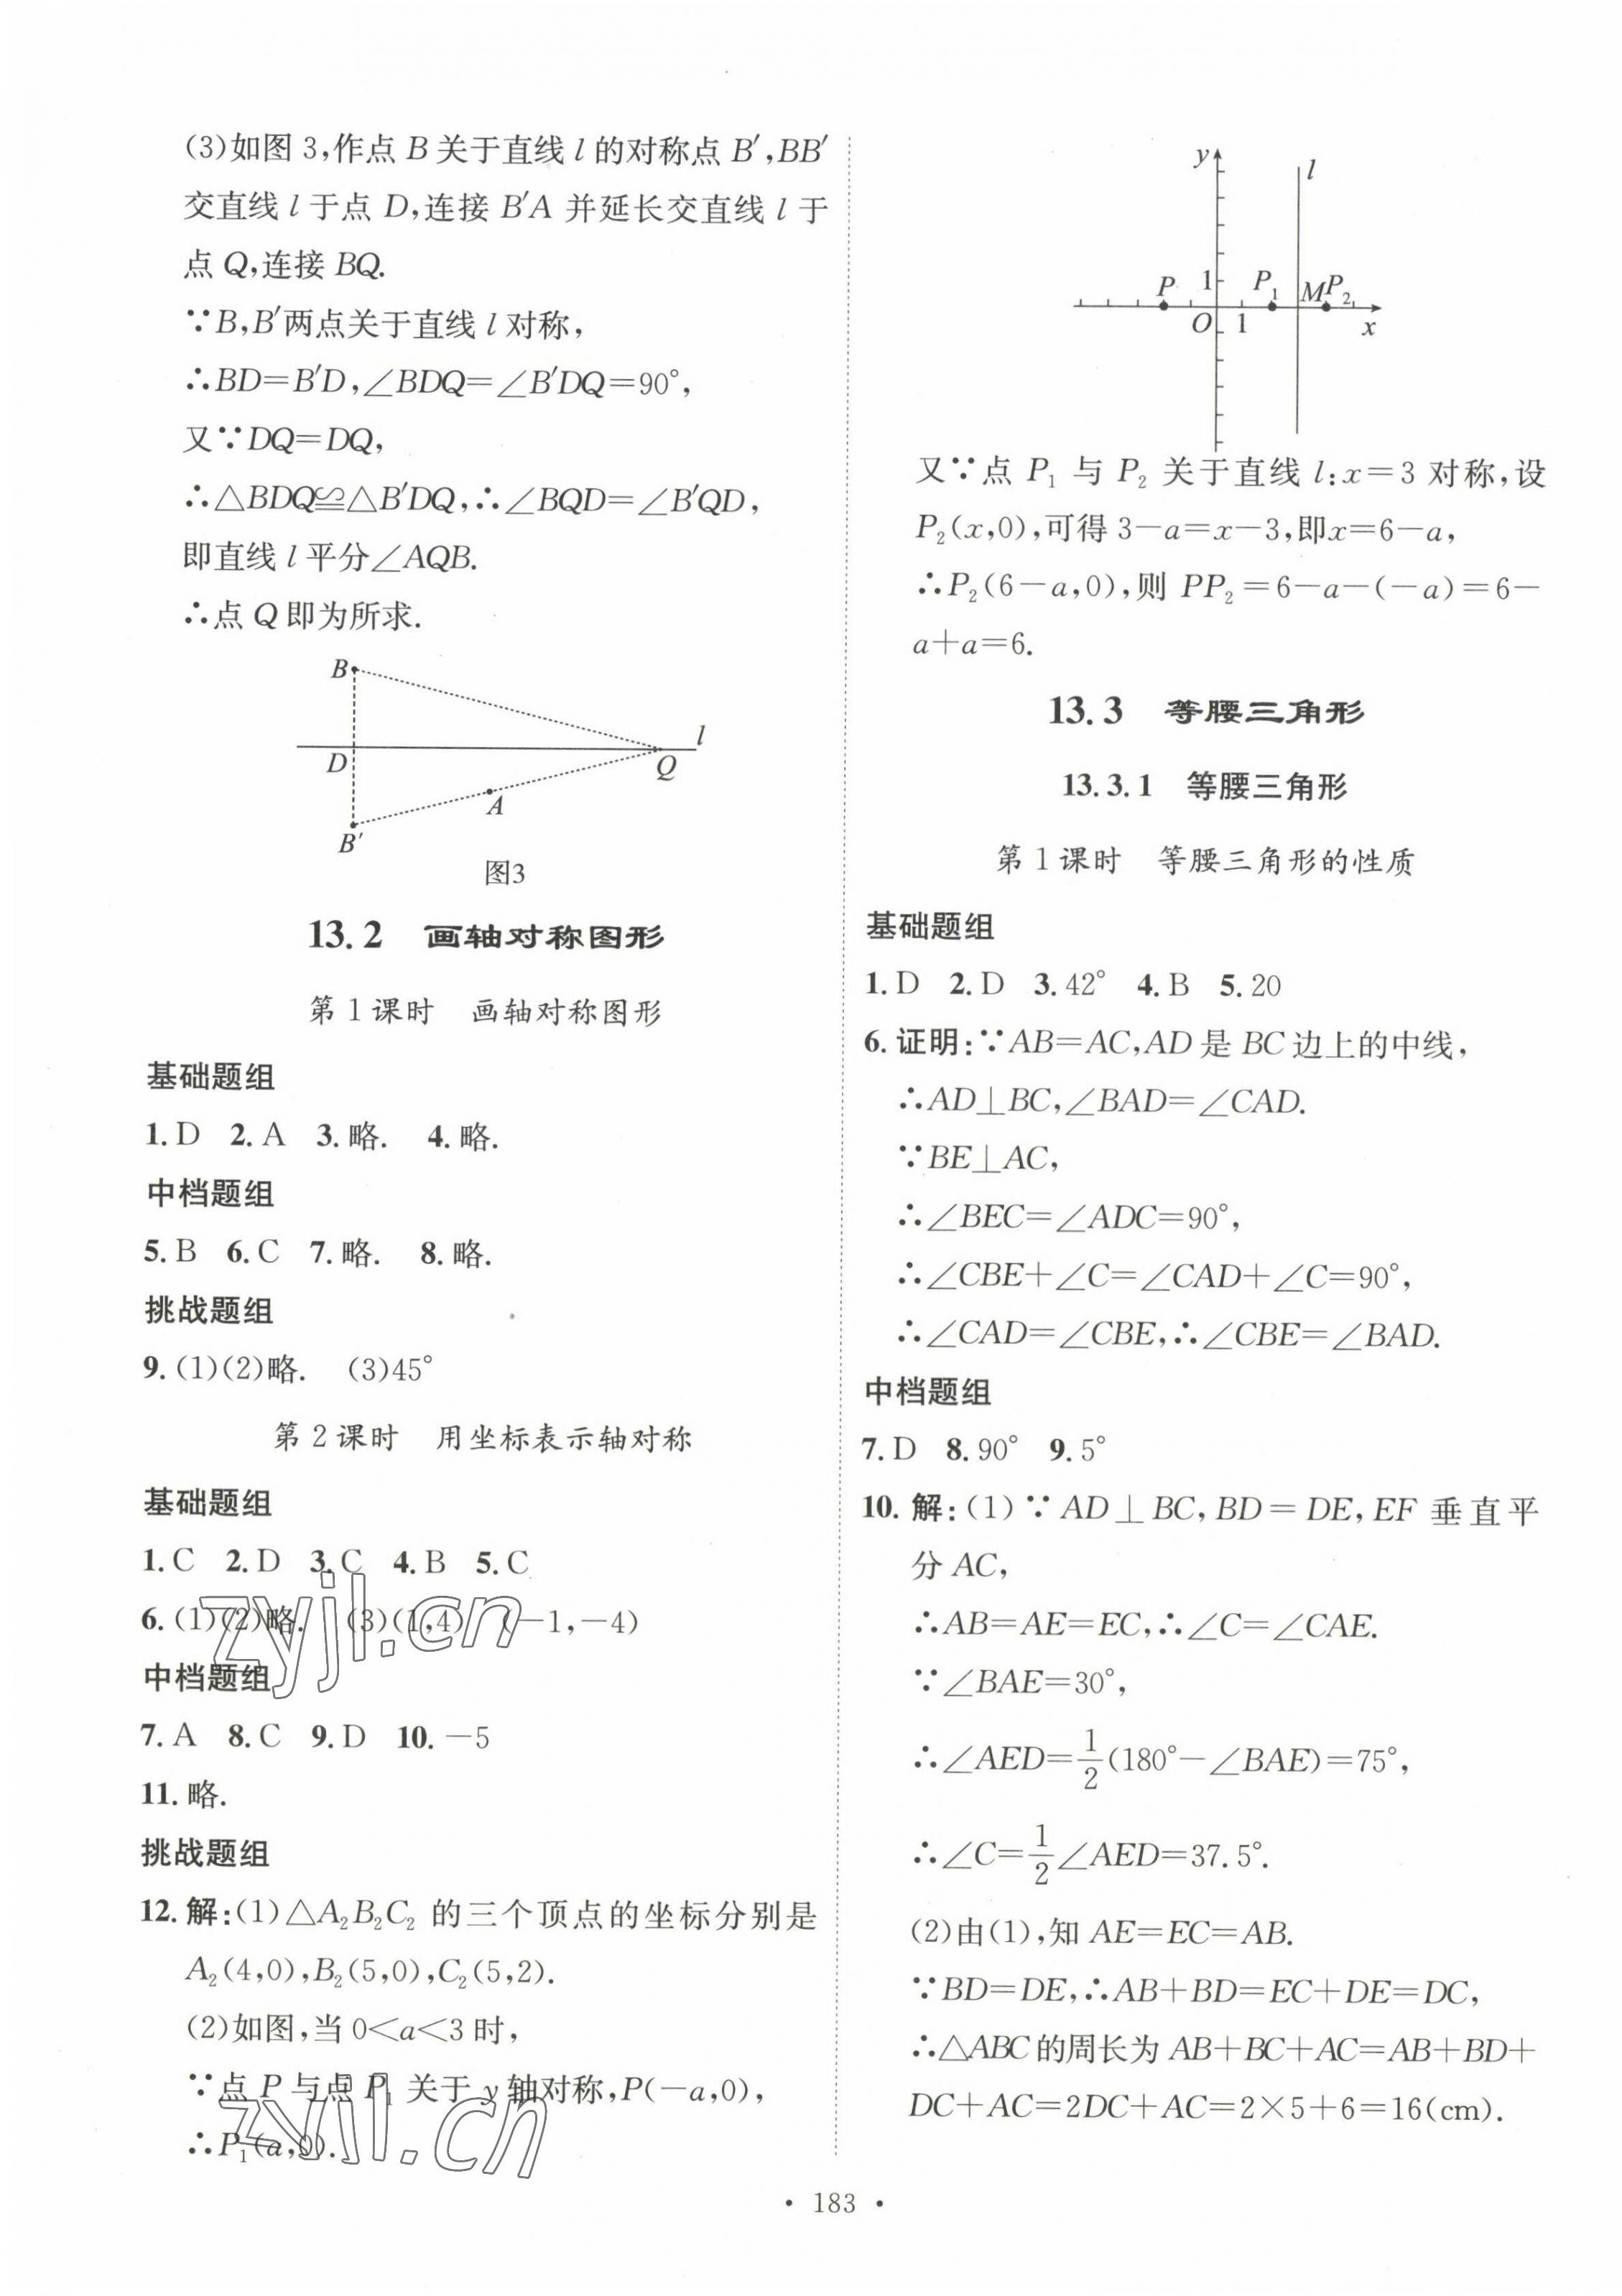 (3)如图 3,作点 B 关于直线 l 的对称点 B′,BB′
交直线 l 于点 D,连接 B′A 并延长交直线 l 于
点 Q,连接 BQ.
∵B,B′两点关于直线 l 对称,
∴BD=B′D,∠BDQ=∠B′DQ=90°,
又∵DQ=DQ,
∴△BDQ≌△B′DQ,∴∠BQD=∠B′QD,
即直线 l 平分∠AQB.
∴点 Q 即为所求.
B
l
D
Q
A
B′
图3
13.2 画轴对称图形
第 1 课时 画轴对称图形
基础题组
1. D 2. A 3. 略. 4. 略.
中档题组
5. B 6. C 7. 略. 8. 略.
挑战题组
9. (1)(2)略. (3)45°
第 2 课时 用坐标表示轴对称
基础题组
1. C 2. D 3. C 4. B 5. C
6. (1)(2)略. (3)(1,4) (-1,-4)
中档题组
7. A 8. C 9. D 10. -5
11. 略.
挑战题组
12. 解:(1)△A₂B₂C₂ 的三个顶点的坐标分别是
A₂(4,0),B₂(5,0),C₂(5,2).
(2)如图,当 0<a<3 时,
∵点 P 与点 P₁ 关于 y 轴对称,P(-a,0),
∴P₁(a,0).
zyjl.cn
zyjl.cn
y
l
P 1 P₁ M P₂
O 1 x
又∵点 P₁ 与 P₂ 关于直线 l:x=3 对称,设
P₂(x,0),可得 3-a=x-3,即x=6-a,
∴P₂(6-a,0),则 PP₂=6-a-(-a)=6-
a+a=6.
13.3 等腰三角形
13.3.1 等腰三角形
第 1 课时 等腰三角形的性质
基础题组
1. D 2. D 3. 42° 4. B 5. 20
6. 证明:∵AB=AC,AD 是 BC 边上的中线,
∴AD⊥BC,∠BAD=∠CAD.
∵BE⊥AC,
∴∠BEC=∠ADC=90°,
∴∠CBE+∠C=∠CAD+∠C=90°,
∴∠CAD=∠CBE,∴∠CBE=∠BAD.
中档题组
7. D 8. 90° 9. 5°
10. 解:(1)∵AD⊥BC,BD=DE,EF 垂直平
分 AC,
∴AB=AE=EC,∴∠C=∠CAE.
∵∠BAE=30°,
∴∠AED=1/2(180°-∠BAE)=75°,
∴∠C=1/2∠AED=37.5°.
(2)由(1),知 AE=EC=AB.
∵BD=DE,∴AB+BD=EC+DE=DC,
∴△ABC 的周长为 AB+BC+AC=AB+BD+
DC+AC=2DC+AC=2×5+6=16(cm).
• 183 •